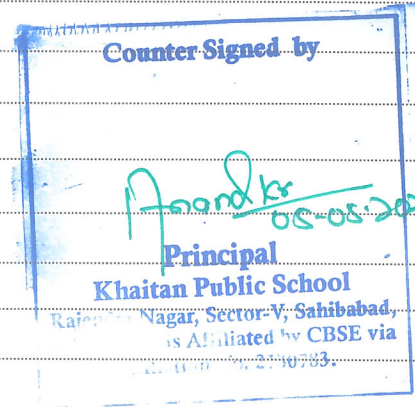 Counter Signed by
Anand Kr
05-05-202
Principal
Khaitan Public School
Rajendra Nagar, Sector-V, Sahibabad,
is Affiliated by CBSE via